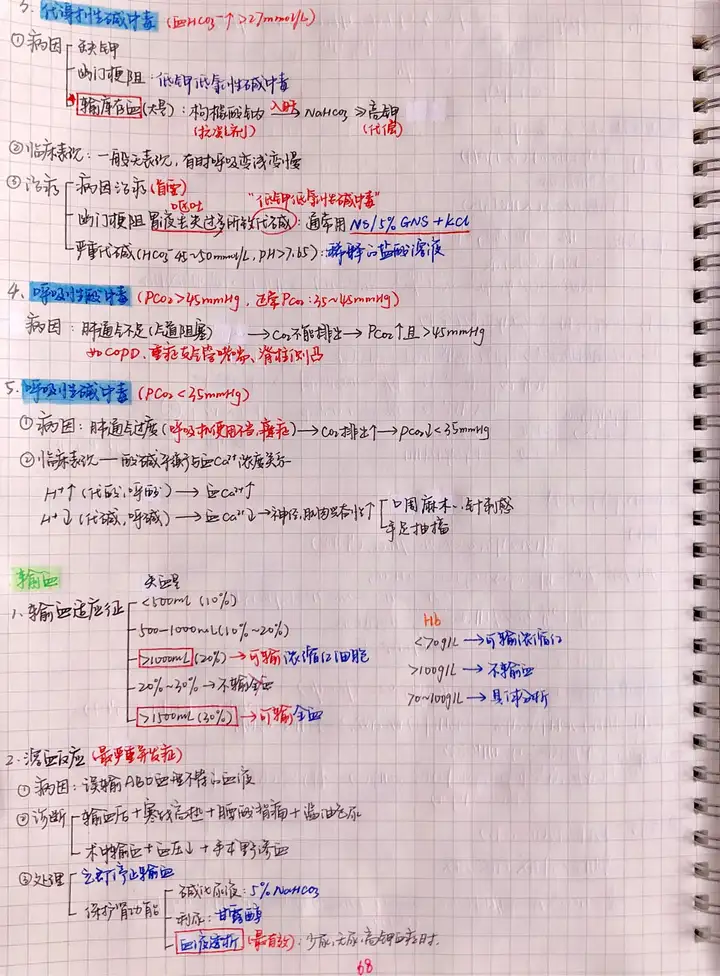 3. 代谢性碱中毒 (血HCO3⁻↑ >27mmol/L)
①病因 缺钾
幽门梗阻：低钾低氯性碱中毒
输库存血(大量)：枸橼酸钠 入肝→ NaHCO3 ≫高钾
(抗凝剂) (代偿)
②临床表现：一般无表现，有时呼吸变浅变慢
③治疗 病因治疗(首要)
呕吐 "低钾低氯性碱中毒"
幽门梗阻 胃液丢失过多所致代碱：通常用 NS/5% GNS + KCl
严重代碱(HCO3⁻ 45~50mmol/L, pH>7.65)：稀释的盐酸溶液
4. 呼吸性酸中毒 (PCO2>45mmHg，正常PCO2：35~45mmHg)
病因：肺通气不足(气道阻塞) → CO2不能排出→ PCO2↑且>45mmHg
如COPD、重症支气管哮喘、脊柱侧凸
5. 呼吸性碱中毒 (PCO2<35mmHg)
①病因：肺通气过度(呼吸机使用不当，癔症)→CO2排出↑→PCO2↓<35mmHg
②临床表现—酸碱平衡与血Ca²⁺浓度关系
H⁺↑ (代酸，呼酸) → 血Ca²⁺↑
H⁺↓ (代碱，呼碱) → 血Ca²⁺↓→神经，肌肉兴奋性↑ 口周麻木、针刺感
手足抽搐
输血
失血量
1. 输血适应征 <500mL (10%)
500-1000mL(10%~20%)
>1000mL (20%) →可输浓缩红细胞
20%~30%→不输全血
>1500mL (30%) →可输全血
Hb
<70g/L →可输浓缩红
>100g/L →不输血
70~100g/L →具体分析
2. 溶血反应 (最严重并发症)
①病因：误输ABO血型不符的血液
②诊断 输血后+寒战高热+腰酸背痛+酱油色尿
术中输血+血压↓+手术野渗血
③处理 立即停止输血
保护肾功能 碱化尿液：5% NaHCO3
利尿：甘露醇
血液透析 (最有效)：少尿，无尿，高钾血症时.
68